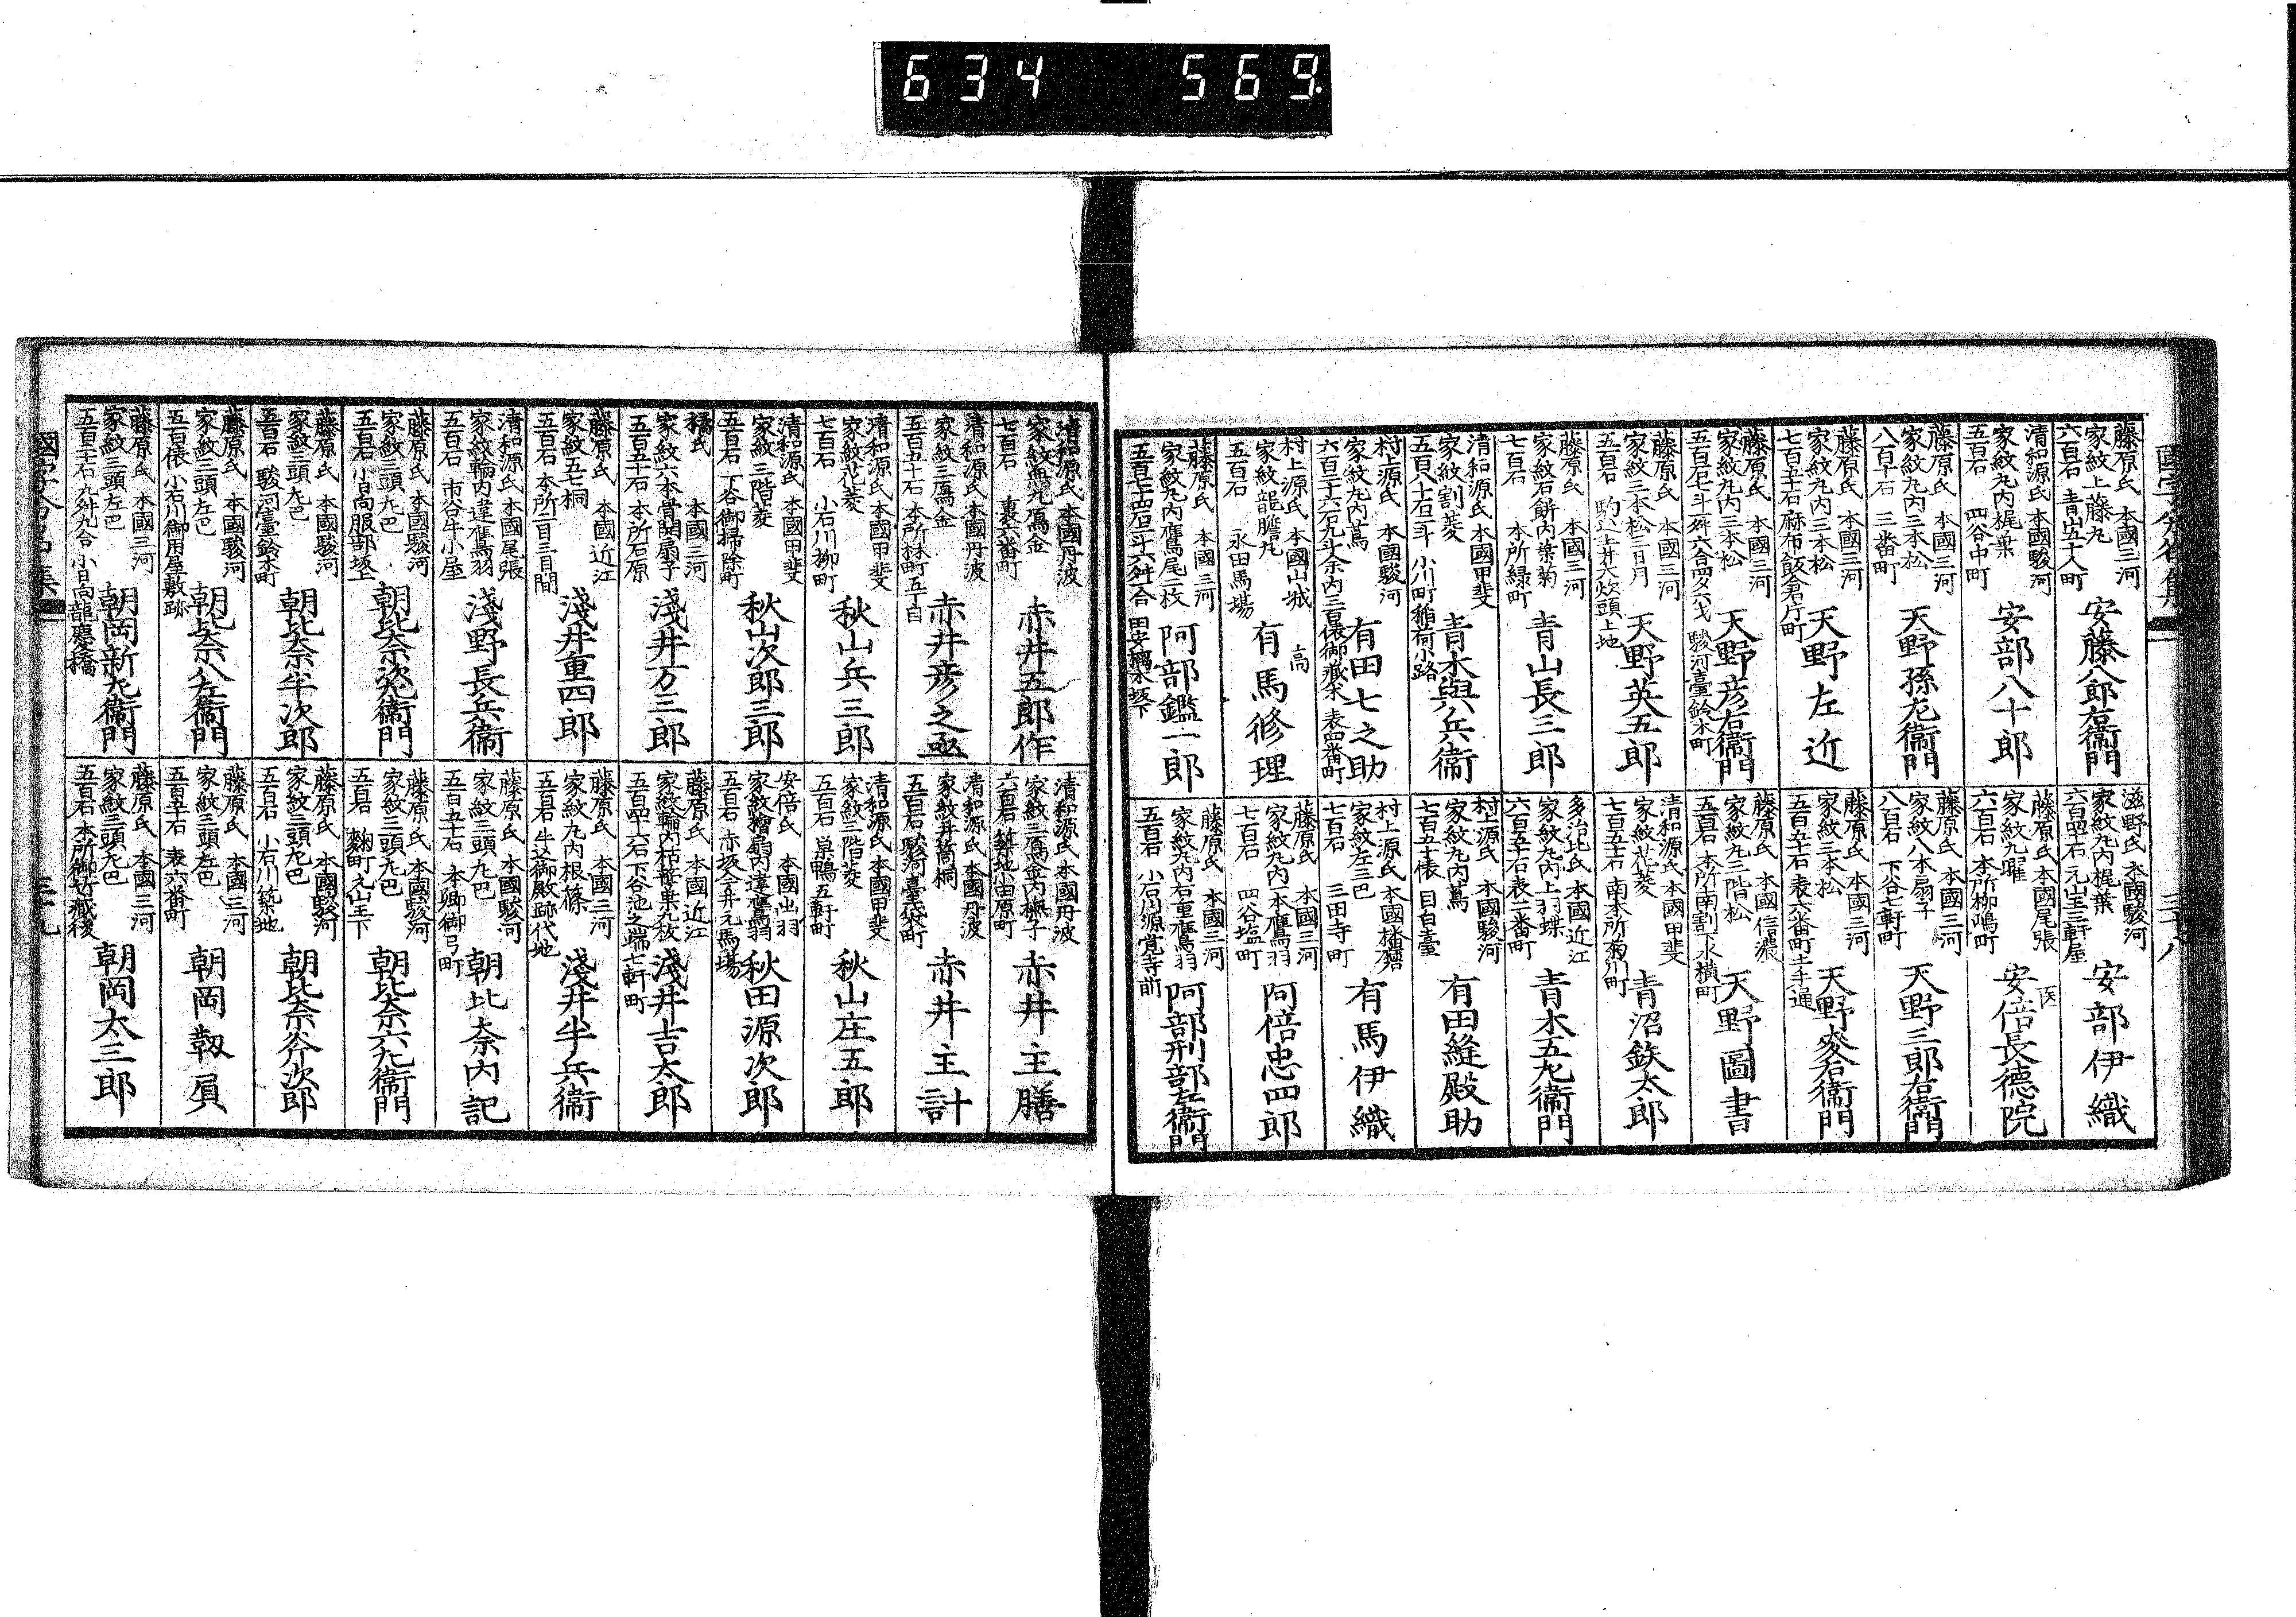 634 569
國字分名集
三十八
藤原氏 本國三河
家紋上藤丸
六百石 青山五十人町
安藤八郎右衞門
清和源氏 本國駿河
家紋丸内梶葉
五百石 四谷中町
安部八十郎
藤原氏 本國三河
家紋丸内三本松
八百十石 三番町
天野孫左衞門
藤原氏 本國三河
家紋丸内三本松
七百五十石 麻布飯倉片町
天野左近
藤原氏 本國三河
家紋丸内三本松
駿河臺鈴木町
天野彦右衞門
藤原氏 本國三河
家紋三本松三日月
五百石 駒込土井大炊頭上地
天野英五郎
藤原氏 本國三河
家紋石餅内葉菊
七百石 本所緑町
青山長三郎
清和源氏 本國甲斐
家紋割菱
五百八十石二斗 小川町稲荷小路
青木與兵衞
村上源氏 本國駿河
家紋丸内蔦
六百二十六石九斗余内三百俵御藏米 表四番町
有田七之助
村上源氏 本國山城
家紋龍膽丸
五百石 永田馬場
高
有馬修理
藤原氏 本國三河
家紋丸内鷹尾二枚
阿部鑑一郎
滋野氏 本國駿河
家紋丸内梶葉
六百四十石 元山王三軒屋
安部伊織
藤原氏 本國尾張
家紋九曜
六百石 本所柳嶋町
医
安倍長德院
藤原氏 本國三河
家紋八本扇子
八百石 下谷七軒町
天野三郎右衞門
藤原氏 本國三河
家紋三本松
五百九十石 表六番町土手通
天野麥右衞門
藤原氏 本國信濃
家紋丸三階松
五百石 本所南割下水横町
天野圖書
清和源氏 本國甲斐
家紋花菱
七百五十石 南本所菊川町
青沼鉄太郎
多治比氏 本國近江
家紋丸内上羽蝶
六百五十石 表二番町
青木五左衞門
村上源氏 本國駿河
家紋丸内蔦
七百五十俵 目白臺
有田縫殿助
村上源氏 本國播磨
家紋左三巴
七百石 三田寺町
有馬伊織
藤原氏 本國三河
家紋丸内一本鷹羽
七百石 四谷塩町
阿倍忠四郎
藤原氏 本國三河
家紋丸内右重鷹羽
五百石 小石川源覚寺前
阿部刑部左衞門
清和源氏 本國丹波
家紋無丸鴈金
七百石 裏六番町
赤井五郎作
清和源氏 本國丹波
家紋三鴈金
五百九十石 本所林町五丁目
赤井彦之亟
清和源氏 本國甲斐
家紋花菱
七百石 小石川柳町
秋山兵三郎
清和源氏 本國甲斐
家紋三階菱
五百石 下谷御掃除町
秋山次郎三郎
橘氏 本國三河
家紋六本骨開扇子
五百五十石 本所石原
淺井万三郎
藤原氏 本國近江
家紋五七桐
五百石 本所二百三目間
淺井重四郎
清和源氏 本國尾張
家紋輪内違鷹羽
五百石 市谷牛小屋
淺野長兵衞
藤原氏 本國駿河
家紋三頭左巴
五百石 小日向服部坂上
朝比奈次左衞門
藤原氏 本國駿河
家紋三頭左巴
五百石 駿河臺鈴木町
朝比奈半次郎
藤原氏 本國駿河
家紋三頭左巴
五百俵 小石川御用屋敷跡
朝比奈八左衞門
藤原氏 本國三河
家紋三頭左巴
五百二十石九舛九合 小日向龍慶橋
朝岡新左衞門
清和源氏 本國丹波
家紋三鴈金内撫子
六百石 築地小田原町
赤井主膳
清和源氏 本國丹波
家紋井筒桐
五百石 駿河臺袋町
赤井主計
清和源氏 本國甲斐
家紋三階菱
五百石 巣鴨五軒町
秋山庄五郎
安倍氏 本國出羽
家紋檜扇内違鷹羽
五百石 赤坂今井元馬場
秋田源次郎
藤原氏 本國近江
五百四十六石 下谷池之端七軒町
淺井吉太郎
藤原氏 本國三河
家紋丸内根篠
五百石 牛込御殿跡代地
淺井半兵衞
藤原氏 本國駿河
家紋三頭左巴
五百五十石 本郷御弓町
朝比奈内記
藤原氏 本國駿河
家紋三頭左巴
五百石 麹町元山王下
朝比奈六左衞門
藤原氏 本國駿河
家紋三頭左巴
五百石 小石川築地
朝比奈斧次郎
藤原氏 本國三河
家紋三頭左巴
五百五十石 表六番町
朝岡靱屓
藤原氏 本國三河
家紋三頭左巴
五百石 本所御竹藏後
朝岡太三郎
國字分名集
三十九